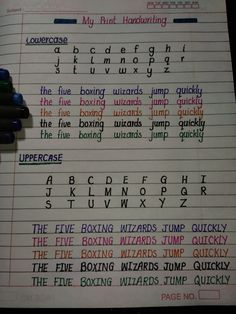 My Print Handwriting
Lowercase
a b c d e f g h i
j k l m n o p q r
s t u v w x y z
the five boxing wizards jump quickly
the five boxing wizards jump quickly
the five boxing wizards jump quickly
the five boxing wizards jump quickly
the five boxing wizards jump quickly
UPPERCASE
A B C D E F G H I
J K L M N O P Q R
S T U V W X Y Z
THE FIVE BOXING WIZARDS JUMP QUICKLY
THE FIVE BOXING WIZARDS JUMP QUICKLY
THE FIVE BOXING WIZARDS JUMP QUICKLY
THE FIVE BOXING WIZARDS JUMP QUICKLY
THE FIVE BOXING WIZARDS JUMP QUICKLY
PAGE NO.